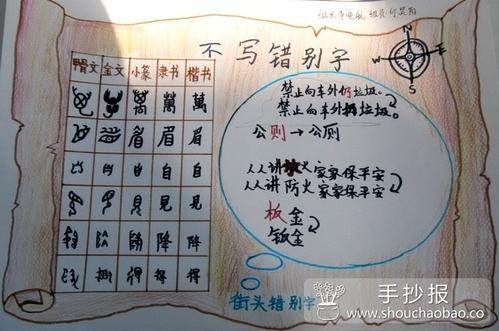 组长
组员
不写错别字
N
W E
S
甲骨文 金文 小篆 隶书 楷书
萬 萬
眉 眉
自 自
見 見
降 降
得 得
禁止向车外仍垃圾。
禁止向车外扔垃圾。
公则→公厕
人人讲火家家保平安
人人讲防火家家保平安
板金
钣金
街头错别字
手抄报
www.shouchaobao.co